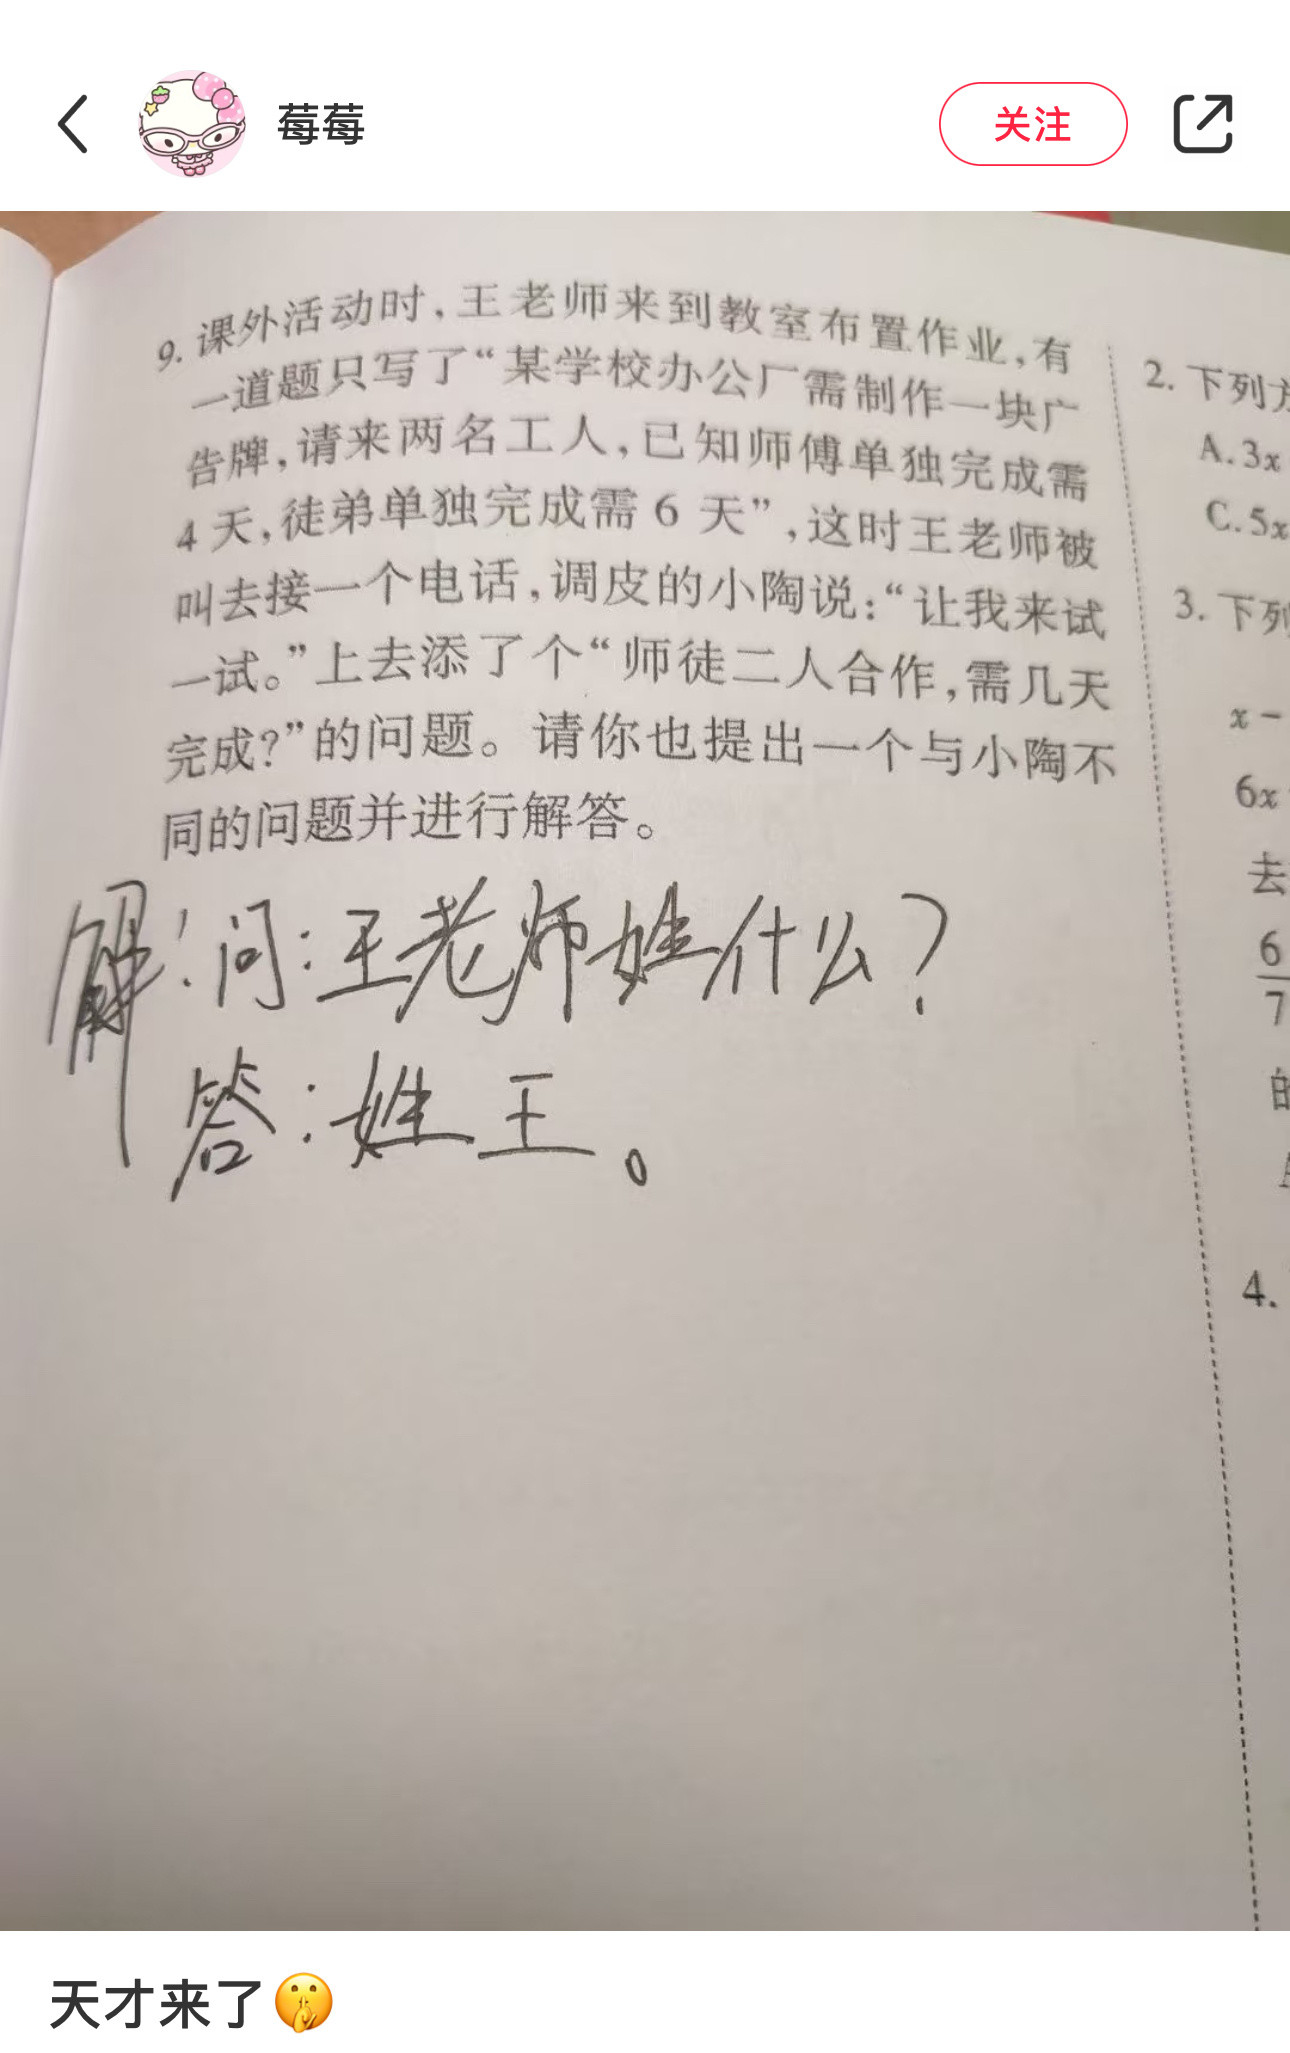 莓莓
关注
9. 课外活动时,王老师来到教室布置作业,有
一道题只写了“某学校办公厂需制作一块广
告牌,请来两名工人,已知师傅单独完成需
4 天,徒弟单独完成需 6 天”,这时王老师被
叫去接一个电话,调皮的小陶说:“让我来试
一试。”上去添了个“师徒二人合作,需几天
完成?”的问题。请你也提出一个与小陶不
同的问题并进行解答。
解:问:王老师姓什么?
答:姓王。
2. 下列方
A. 3x
C. 5x
3. 下列
x -
6x
去
6
7
的
4.
天才来了🤫